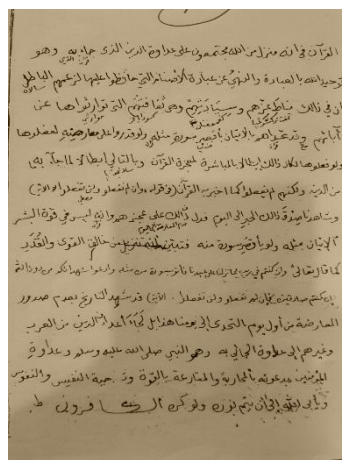 القرآن في انه منزل من الله مجتمعون على عداوة الدين الذي جاء به وهو
توحيد الله بالعبادة والنهي عن عبادة الأصنام التي حافظوا عليها لزعمهم الباطل
ان في ذلك مناط عزهم وسيادتهم وهو ثقافتهم التي توارثوها عن
آبائهم وتحداهم بالإتيان بأقصر سورة منه ولو قدروا على معارضته لفعلوها
ولو فعلوها لكان ذلك إبطالا بالمباشرة لمعجزة القرآن وبالتالي ابطالا لما جاء به
من الدين ولكنهم لم يفعلوا كما اخبر به القرآن في قوله وان لم تفعلوا ولن تفعلوا
وشاهدنا صدق ذلك الخبر إلى اليوم فدل ذلك على عجزهم وانه ليس في قوة البشر
الإتيان بمثله ولو بأقصر سورة منه فتبين انه تنزيل من خالق القوى والقدر
كما قال تعالى وان كنتم في ريب مما نزلنا على عبدنا فأتوا بسورة من مثله وادعوا شهداءكم من دون الله
إن كنتم صادقين فإن لم تفعلوا ولن تفعلوا قد شهد التاريخ بعدم صدور
المعارضة من أول يوم التحدي إلى يومنا هذا بل لجأ أعداء الدين من العرب
وغيرهم إلى عداوة الجائي به وهو النبي صلى الله عليه وسلم وعداوة
المؤمنين بدعوته بالمحاربة والمقارعة بالقوة وتضحية النفيس والنفوس
ويأبى الله إلا أن يتم نوره ولو كره الكافرون